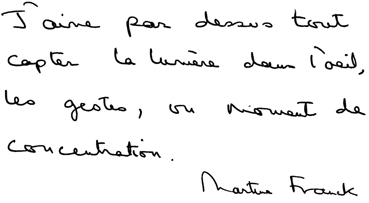 J'aime par dessus tout
capter la lumière dans l'oeil,
les gestes, un moment de
concentration.
Martine Franck